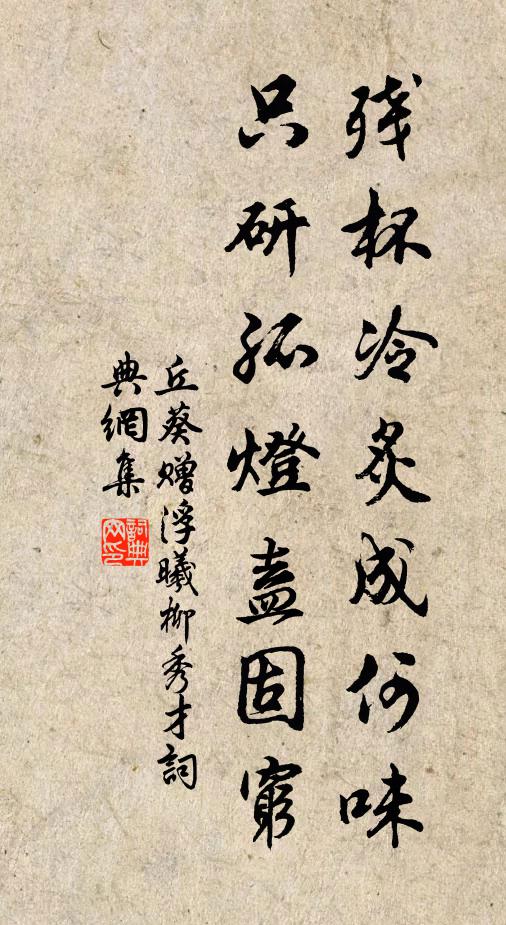 残杯冷炙成何味
只研孤燈盍固窮
丘葵贈浮曦柳秀才詞
典網集
詞典网印